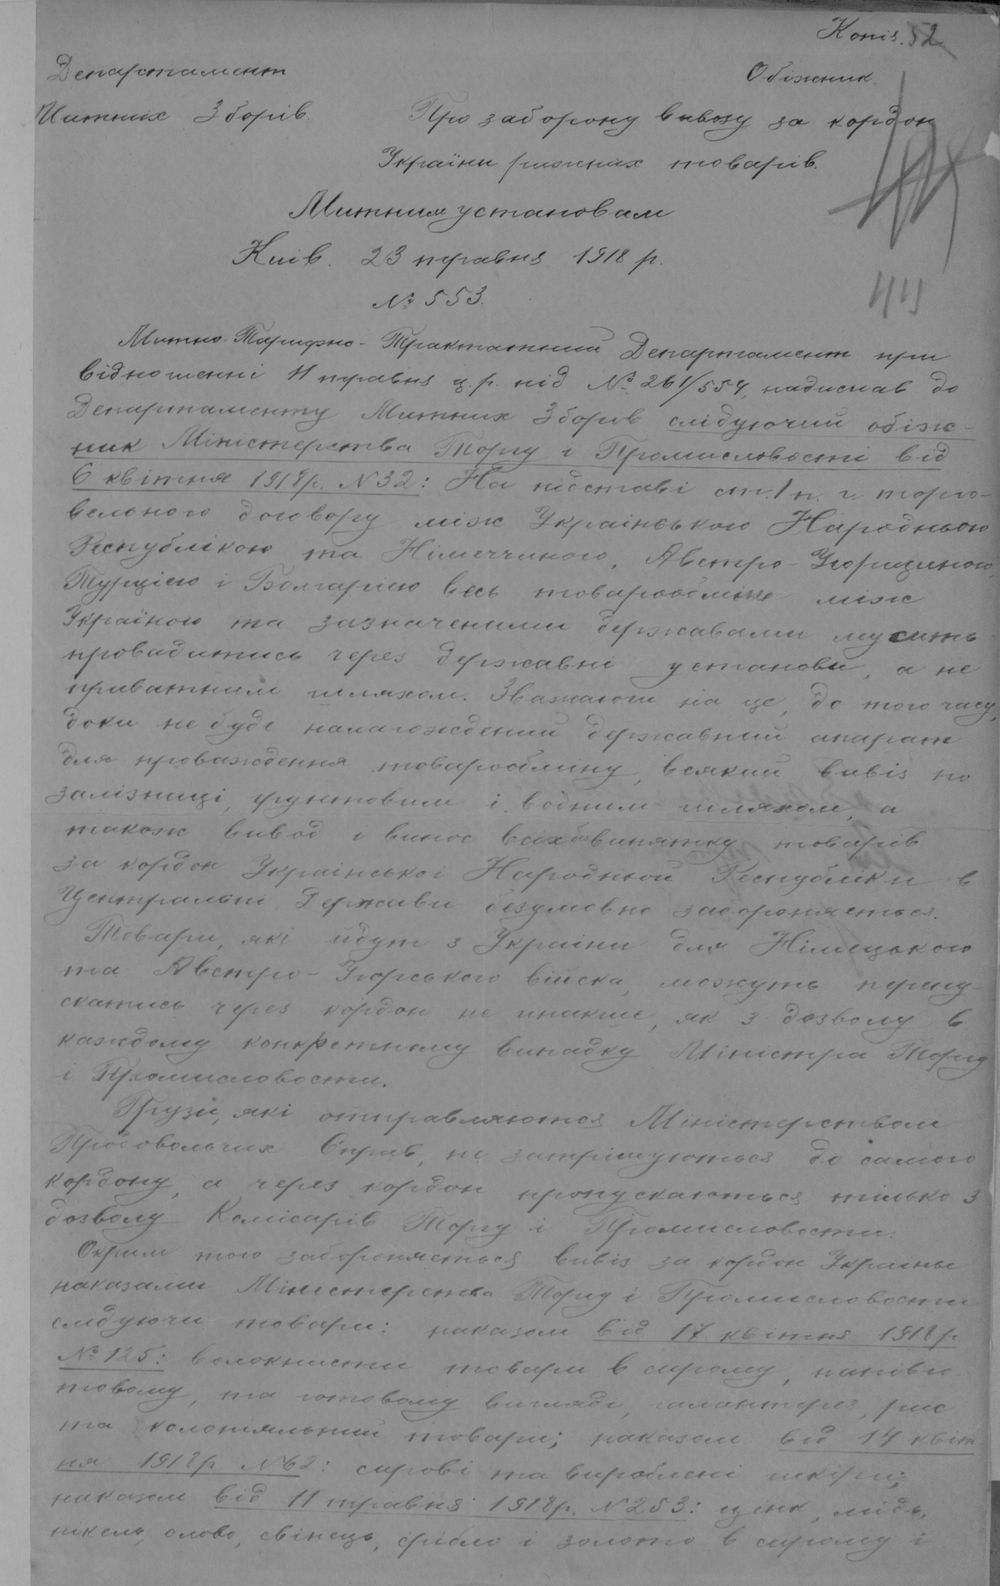 Копія. 52
Департамент
Обіжник.
Митних Зборів.
Про заборону вивозу за кордон
України ріжних товарів.
Митним установам
Київ. 23 травня 1918 р.
№ 553.
Митно-Тарифно-Трактатний Департамент при
відношенні 11 травня ц.р. під № 261/554, надіслав до
Департаменту Митних Зборів слідуючий обіж-
ник Міністерства Торгу і Промисловости від
6 квітня 1918 р. N 32: На підставі ст. 1 п. г. торго-
вельного договору між Українською Народньою
Республікою та Німеччиною, Австро-Угорщиною,
Турцією і Болгарією весь товарообмін між
Україною та зазначеними державами мусить
провадитись через державні установи, а не
приватним шляхом. Зважаючи на це, до того часу,
доки не буде налагожений державний апарат
для провадження товарообміну, всякий вивіз по
залізниці, грунтовим і водним шляхом, а
також вивод і винос всіх без винятку товарів
за кордон Української Народньої Республіки в
Центральні Держави безумовно забороняється.
Товари, які йдут з України для Німецького
та Австро-Угорського війска, можуть перепу-
скатись через кордон не инакше, як з дозволу в
каждому конкретному випадку Міністра Торгу
і Промисловости.
Грузи, які отправляются Міністерством
Продовольчих Справ, не затрімуються до самого
кордону, а через кордон пропускаються тілько з
дозволу Комісарів Торгу і Промисловости.
Окрим того забороняється вивіз за кордон України
наказами Міністерства Торгу і Промисловости
слідуючи товари: наказом від 17 квітня 1918 р.
№ 125: волокнисти товари в сирому, напівго-
товому, та готовому вигляді, галантерея, рис
та колоніяльний товари; наказом від 14 квіт-
ня 1918 р. N 62: сирові та вироблені шкіри;
наказом від 11 травня 1918 р. N 253: цінк, мідь,
нікель, олово, свінець, срібло і золото в сирому і